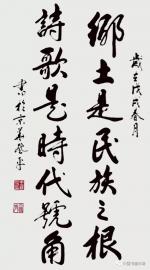 歲在戊戌春月
鄉土是民族之根
詩歌是時代號角
書於京華